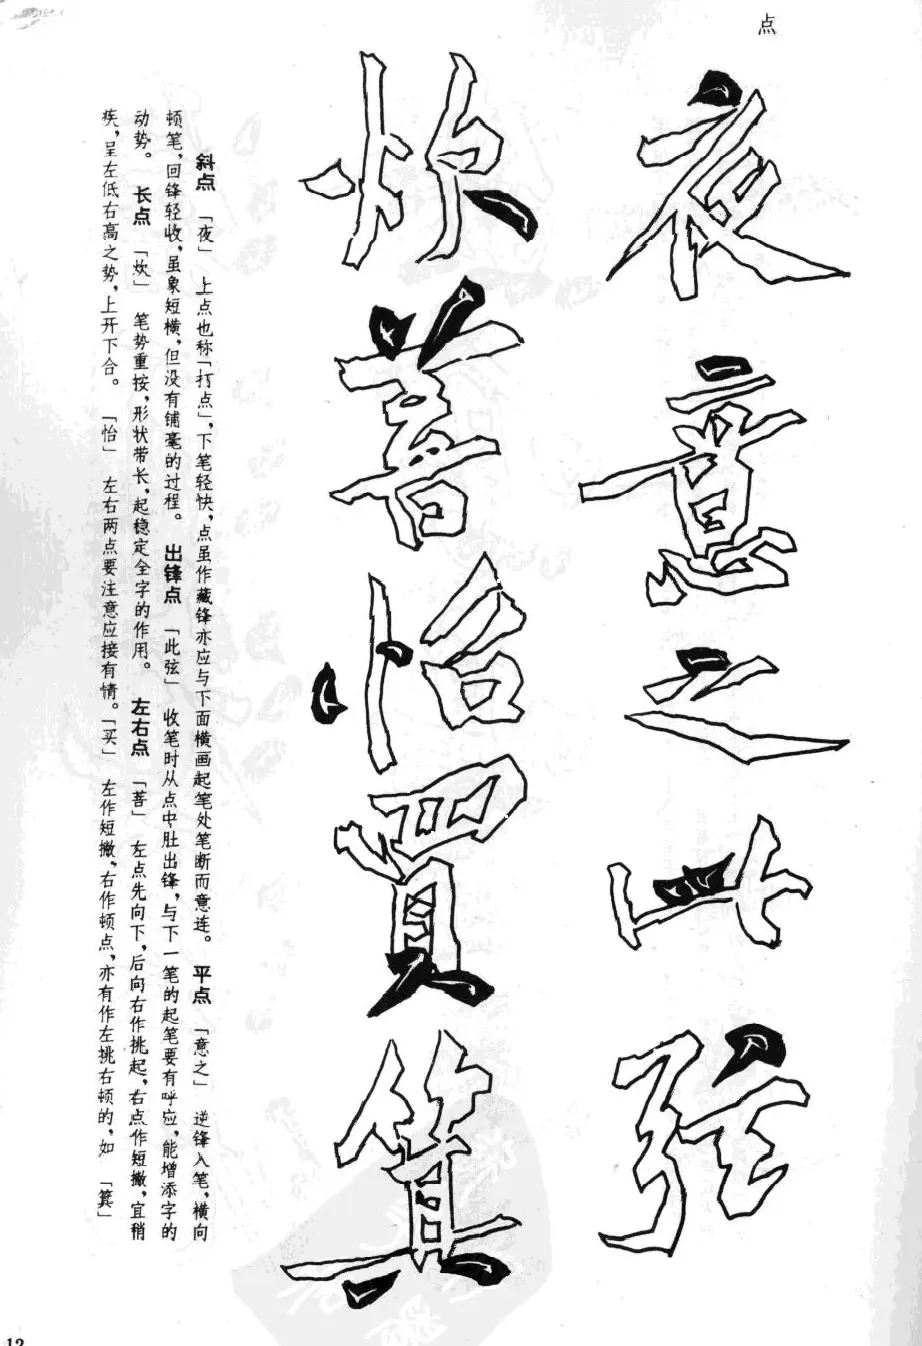 点
夜
意
之
此
弦
炊
菩
怡
買
箕
斜点 「夜」 上点也称「打点」，下笔轻快，点虽作藏锋亦应与下面横画起笔处笔断而意连。 平点 「意之」 逆锋入笔，横向
顿笔，回锋轻收，虽象短横，但没有铺毫的过程。 出锋点 「此弦」 收笔时从点中肚出锋，与下一笔的起笔要有呼应，能增添字的
动势。 长点 「炊」 笔势重按，形状带长，起稳定全字的作用。 左右点 「菩」 左点先向下，后向右作挑起，右点作短撇，宜稍
疾，呈左低右高之势，上开下合。 「怡」 左右两点要注意应接有情。「买」 左作短撇，右作顿点，亦有作左挑右顿的，如 「箕」
12